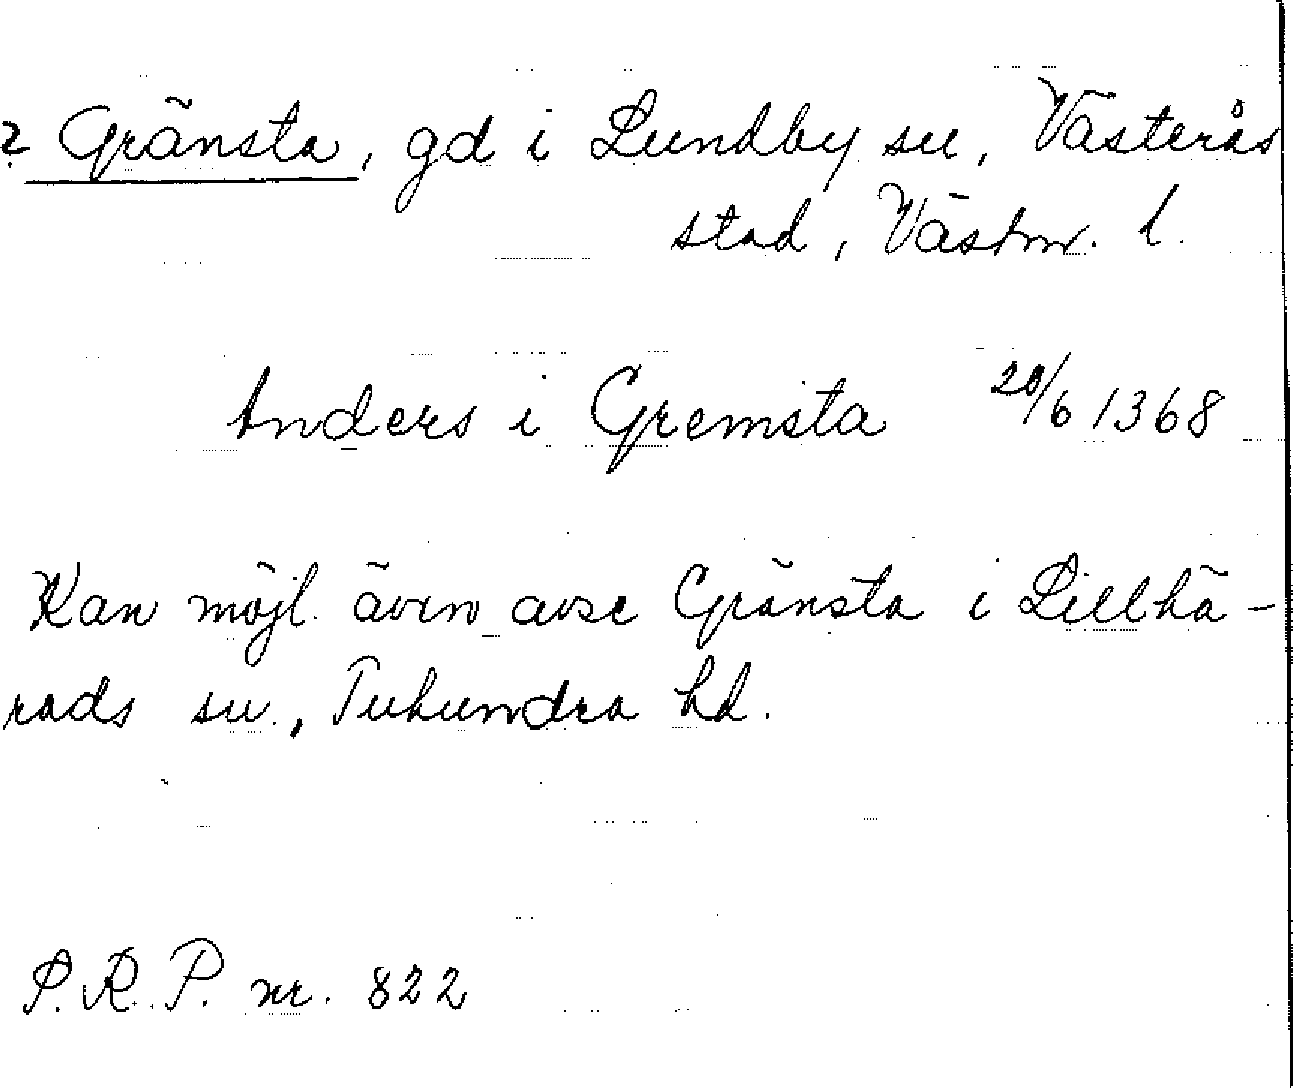 ? Gränsta, gd i Lundby sn, Västerås
stad, Västm. l.
Anders i Gremsta 20/6 1368
Kan möjl. även avse Gränsta i Lillhä-
rads sn., Tuhundra hd.
S.R.P. nr. 822